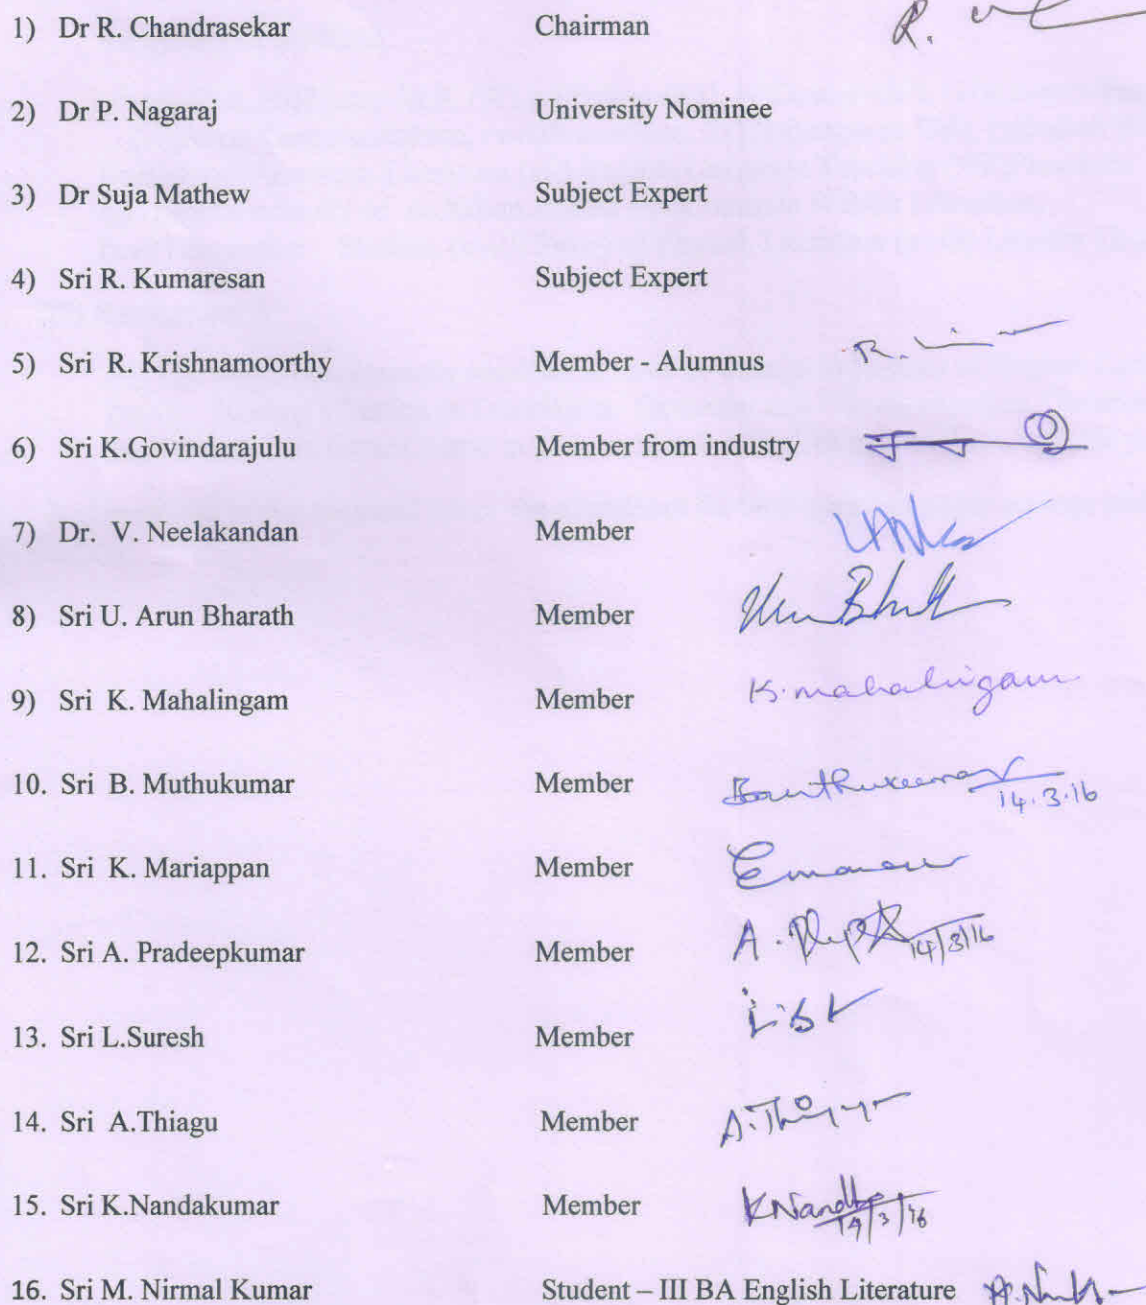 1) Dr R. Chandrasekar Chairman R.
2) Dr P. Nagaraj University Nominee
3) Dr Suja Mathew Subject Expert
4) Sri R. Kumaresan Subject Expert
5) Sri R. Krishnamoorthy Member - Alumnus R.
6) Sri K.Govindarajulu Member from industry
7) Dr. V. Neelakandan Member
8) Sri U. Arun Bharath Member
9) Sri K. Mahalingam Member K. mahalingam
10. Sri B. Muthukumar Member 14.3.16
11. Sri K. Mariappan Member
12. Sri A. Pradeepkumar Member A. 14/3/16
13. Sri L.Suresh Member
14. Sri A.Thiagu Member
15. Sri K.Nandakumar Member 14/3/16
16. Sri M. Nirmal Kumar Student – III BA English Literature